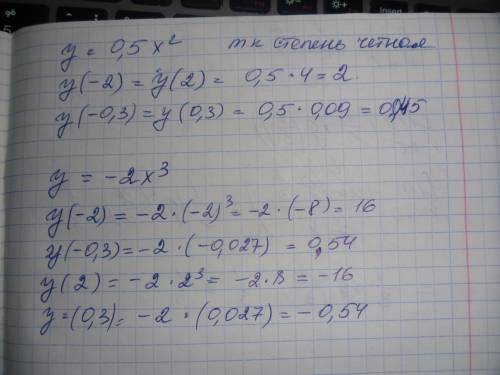 y = 0,5 x² тк степень четная
y(-2) = y(2) = 0,5 · 4 = 2.
y(-0,3) = y(0,3) = 0,5 · 0,09 = 0,045
y = -2x³
y(-2) = -2 · (-2)³ = -2 · (-8) = 16
y(-0,3) = -2 · (-0,027) = 0,54
y(2) = -2 · 2³ = -2 · 8 = -16
y = (0,3) = -2 · (0,027) = -0,54
insert